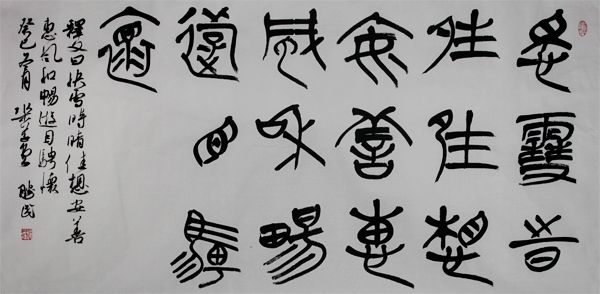 快雪時
晴佳想
安善惠
風和暢
遊目騁
懷
釋文曰快雪時晴佳想安善
惠風和暢遊目騁懷
癸巳